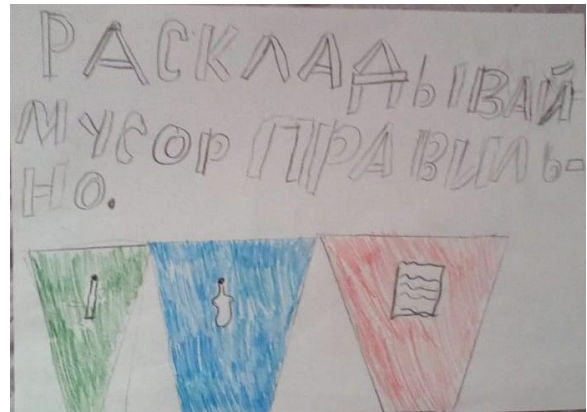 РАСКЛАДЫВАЙ
МУСОР ПРАВИЛЬ-
НО.